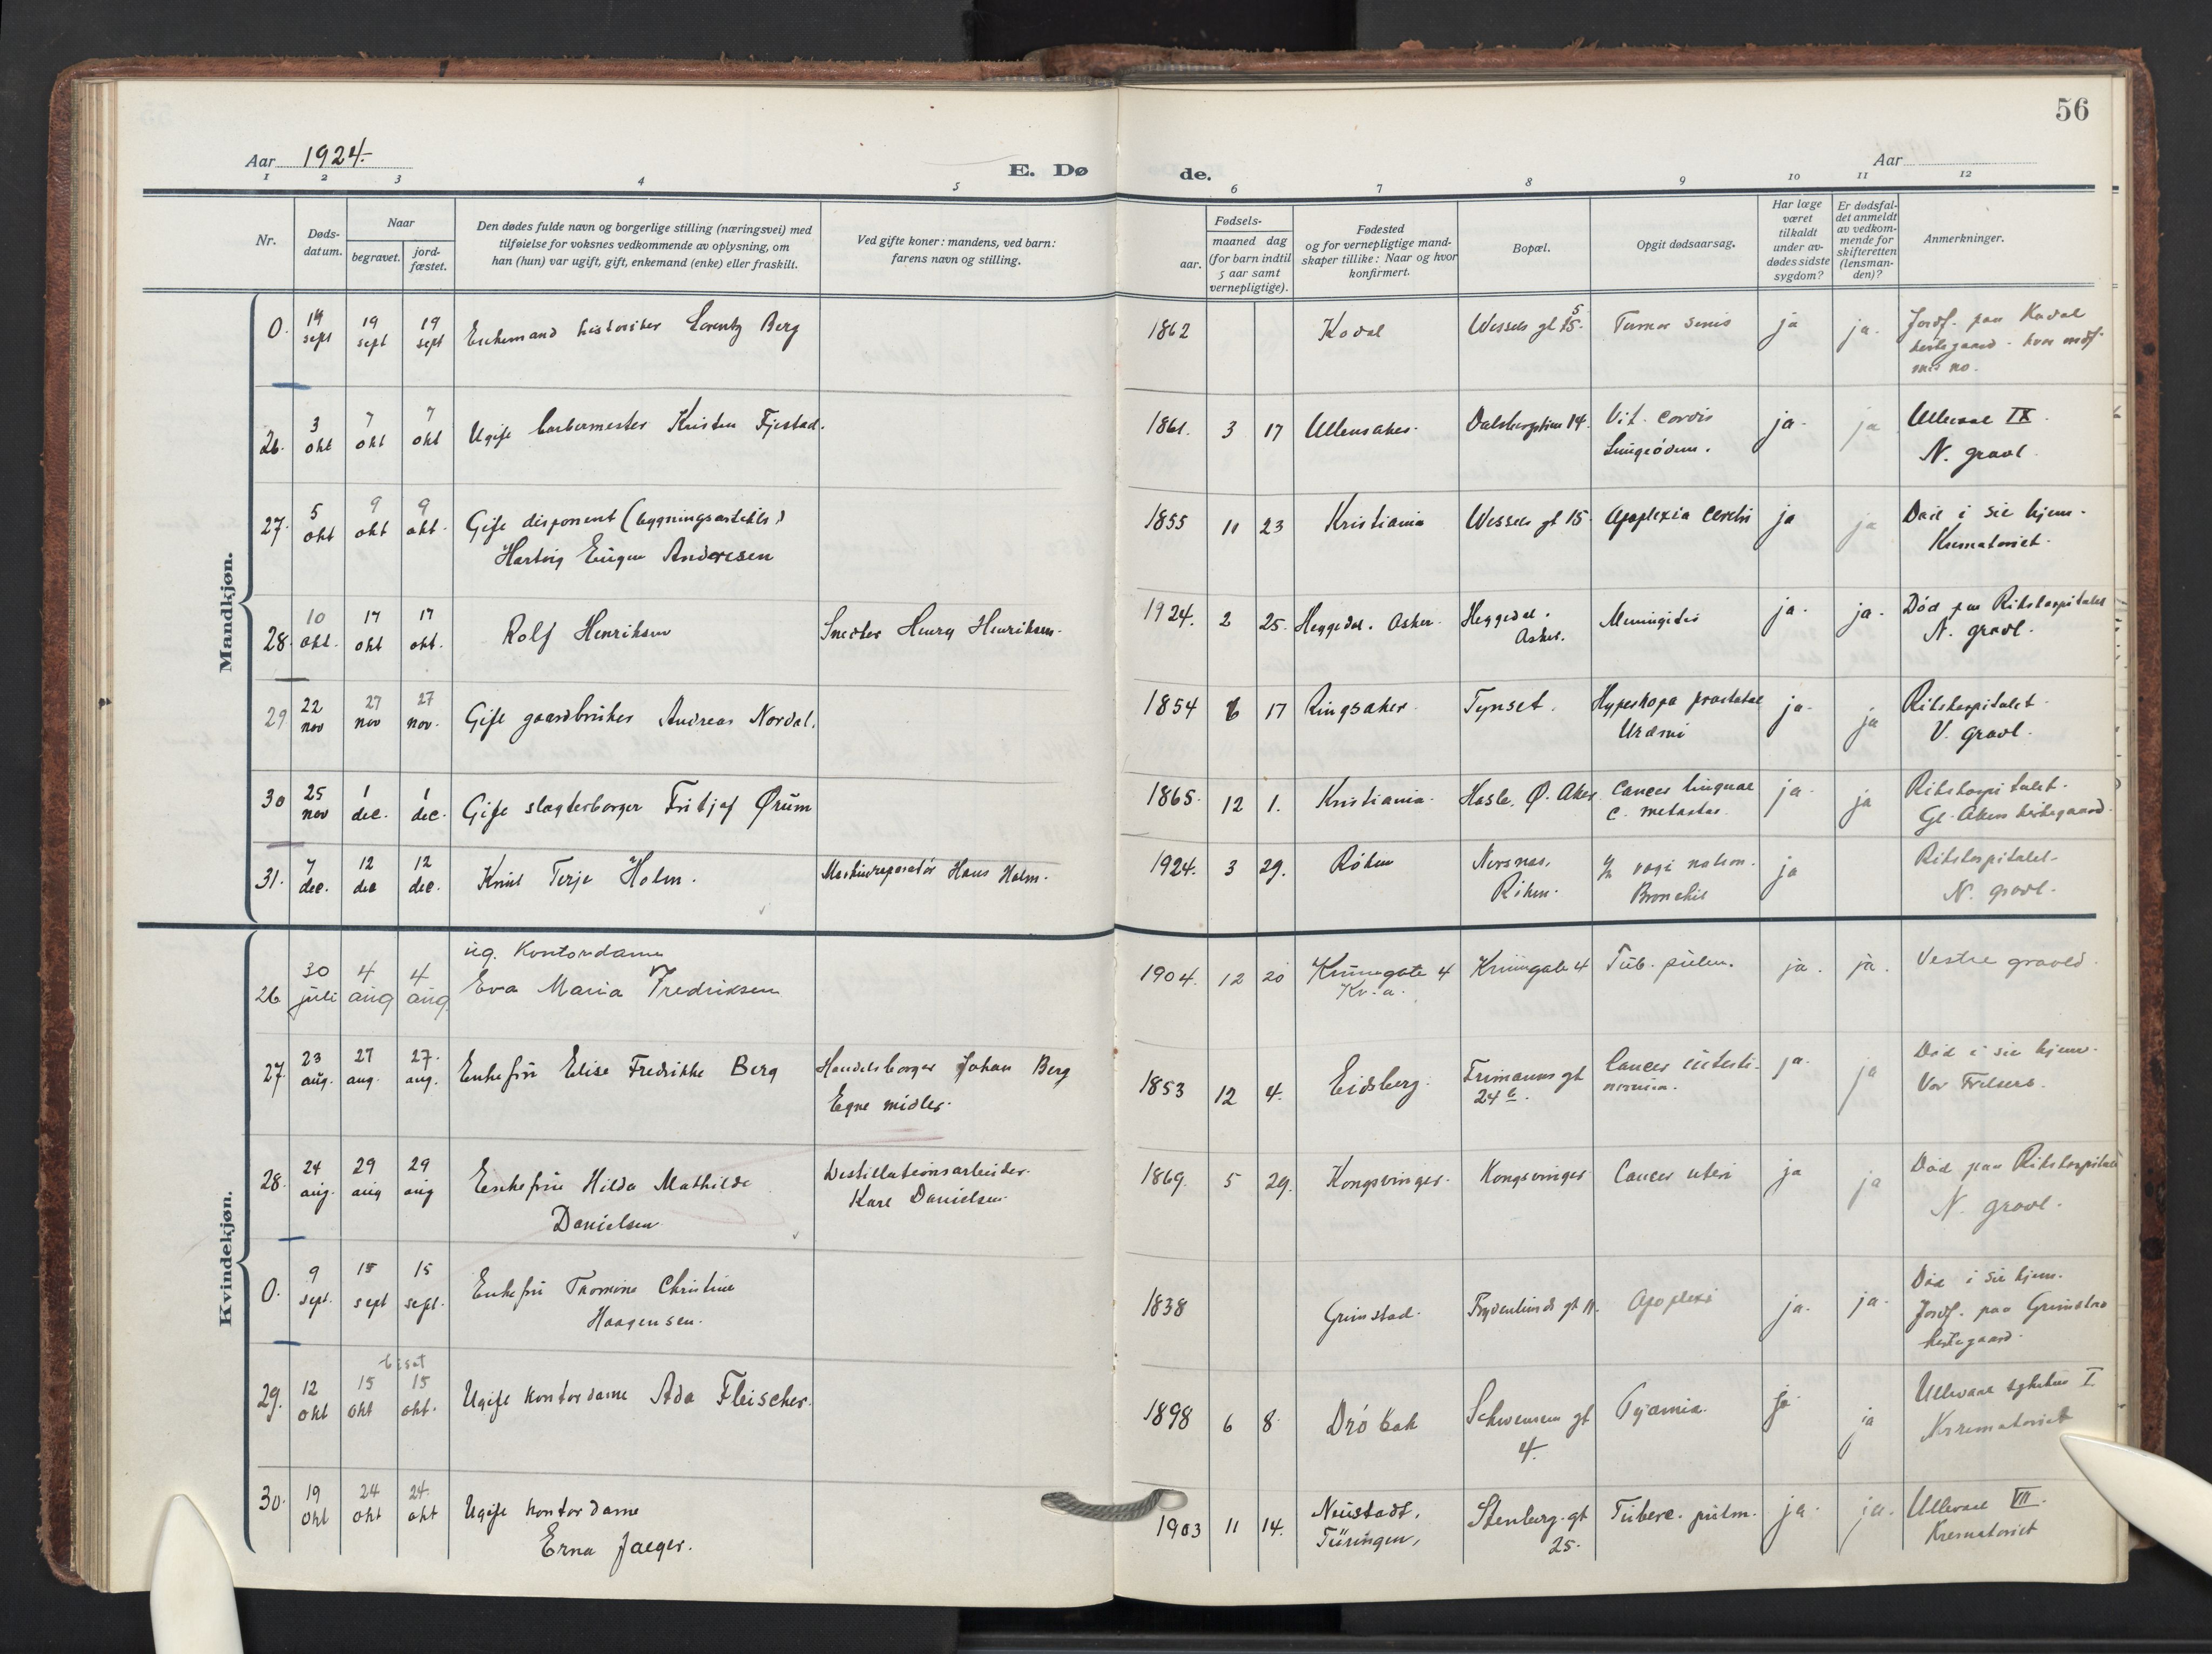 56
Aar 1924.
E. Døde.
Aar
1 2 3 4 5 6 7 8 9 10 11 12
Nr.
Døds-
datum.
Naar
begravet.
jord-
fæstet.
Den dødes fulde navn og borgerlige stilling (næringsvei) med
tilføielse for voksnes vedkommende av oplysning, om
han (hun) var ugift, gift, enkemand (enke) eller fraskilt.
Ved gifte koner: mandens, ved barn:
farens navn og stilling.
Fødsels-
aar.
maaned dag
(for barn indtil
5 aar samt
vernepligtige).
Fødested
og for vernepligtige mand-
skaper tillike: Naar og hvor
konfirmert.
Bopæl.
Opgit dødsaarsag.
Har læge
været
tilkaldt
under av-
dødes sidste
sygdom?
Er dødsfal-
det anmeldt
av vedkom-
mende for
skifteretten
(lensman-
den)?
Anmerkninger.
Mandkjøn.
0. 14 sept 19 sept 19 sept Enkemand historiker Lorentz Berg 1862 Kodal Wessels gt 15. 5 Tumor ja ja. Jordf. paa Kodal
kirkegaard - hvor
no.
26. 3 okt 7 okt 7 okt Ugift barbermester Kristen Fjestad. 1861. 3 17 Ullensaker. Dalsbergstien 14. Vit. cordis ja. ja Ullevaal IX
Lungeödem. N. gravl.
27. 5 okt 9 okt 9 okt. Gift disponent (bygningsarkitekt) 1855 11 23 Kristiania Wessels gt 15. Apoplexia cerebri ja ja Död i sit hjem.
Hartvig Eugen Andresen Krematoriet.
28. 10 okt. 17 okt 17 okt. Rolf Henriksen Snedker Henry Henriksen. 1924. 2 25. Heggedal. Asker. Heggedal. Meningitis ja. ja. Död paa Rikshospitalet
Asker. N. gravl.
29 22 nov 27 nov 27 nov. Gift gaardbruker Andreas Nordal. 1854 6 17 Ringsaker. Tynset. prostatae ja. ja Rikshospitalet
Urämi V. gravl.
30 25 nov 1 dec. 1 dec. Gift slagterborger Fritjof Ørum 1865. 12 1. Kristiania. Hasle. Ø. Aker Cancer linguae ja. ja Rikshospitalet.
c. metastas. Gl. Akers kirkegaard.
31. 7 dec. 12 dec 12 dec. Knut Terje Holm. Maskinreparatör Hans Holm. 1924. 3 29. Röken Nærsnes, ja Rikshospitalet.
Röken. Bronchit N. gravl.
Kvindekjøn.
26 30 juli 4 aug 4 aug. ug. Kontordame
Eva Maria Fredriksen 1904. 12 20 Krumgate 4 Krumgate 4 Tub. pulm. ja. ja. Vestre gravld.
Kr.a.
27. 23 aug. 27 aug. 27. aug. Enkefru Elise Fredrikke Berg Handelsborger Johan Berg 1853 12 4. Eidsberg. Frimanns gt Cancer intesti- ja. ja Död i sit hjem.
Egne midler. 24 b. Vor Frelsers.
28. 24 aug. 29 aug 29 aug Enkefru Hilda Mathilde Destillationsarbeider. 1869. 5 29. Kongsvinger. Kongsvinger Cancer uteri ja ja Död paa Rikshospitalet
Danielsen Karl Danielsen. N. gravl.
0. 9 sept. 15 sept 15 sept. Enkefru Thomine Christine 1838 Grimstad. Frydenlunds gt 11. Apoplexi ja. ja. Död i sit hjem.
Haagensen. Jordf. paa Grimstad
kirkegaard.
biset
29. 12 okt 15 okt 15 okt. Ugift kontordame Ada Fleischer. 1898 6 8. Dröbak Schwensens gt Pyämia. ja. ja Ullevaal sykehus I
4. Krematoriet
30. 19 okt 24 okt 24. okt Ugift kontordame 1903 11 14. Neustadt, Stenberg. gt Tuberc. pulm. ja. ja. Ullevaal VII.
Erna Jaeger. Türingen, 25. Krematoriet